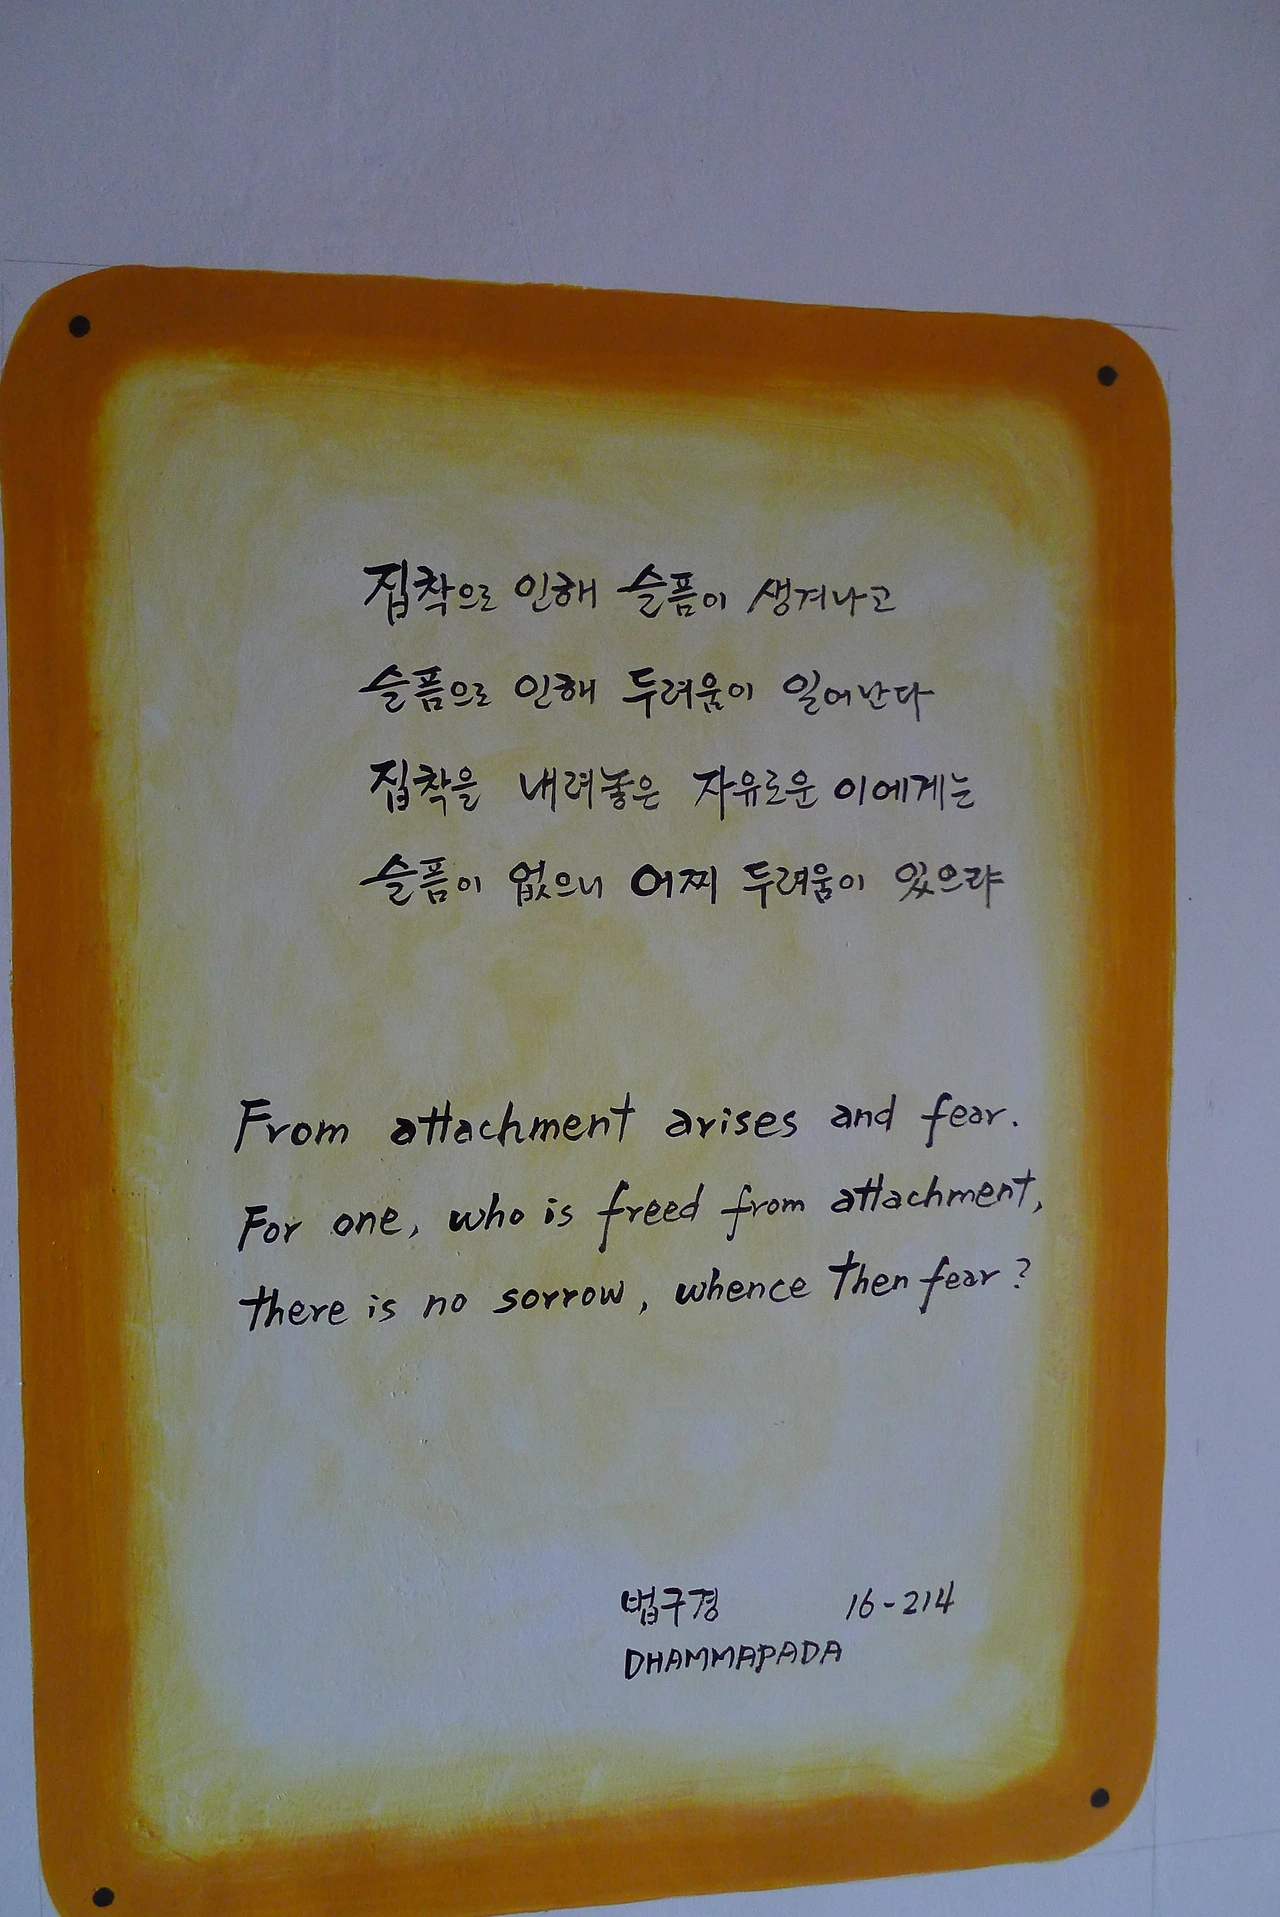 집착으로 인해 슬픔이 생겨나고
슬픔으로 인해 두려움이 일어난다
집착을 내려놓은 자유로운 이에게는
슬픔이 없으니 어찌 두려움이 있으랴
From attachment arises and fear.
For one, who is freed from attachment,
there is no sorrow, whence then fear?
법구경 16-214
DHAMMAPADA